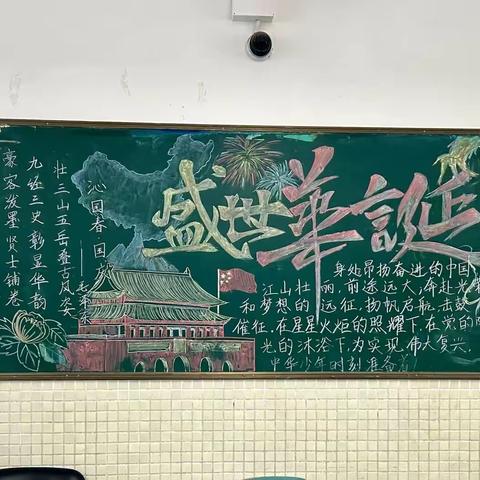 盛世華誕
沁园春 国
壮三山五岳叠古风尖
九经三史彰显华韵
豪客泼墨贤士铺卷
身处昂扬奋进的中国
江山壮丽,前途远大,奔赴光
和梦想的远征,扬帆启航,击鼓
催征,在星星火炬的照耀下,在党的阳
光的沐浴下,为实现伟大复兴,
中华少年时刻准备着